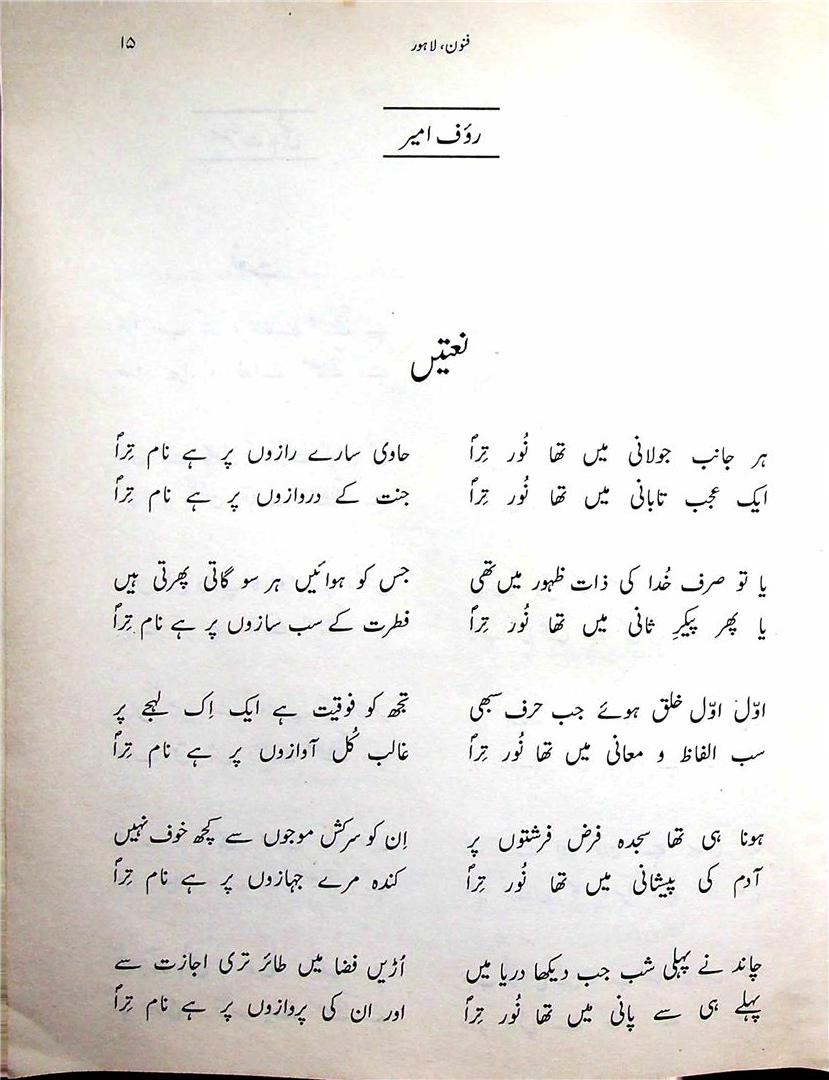 فنون، لاہور
۱۵
رؤف امیر
نعتیں
ہر جانب جولانی میں تھا نُور تِرا
ایک عجب تابانی میں تھا نُور تِرا
یا تو صرف خُدا کی ذات ظہور میں تھی
یا پھر پیکرِ ثانی میں تھا نُور تِرا
اوّل اوّل خلق ہوئے جب حرف سبھی
سب الفاظ و معانی میں تھا نُور تِرا
ہونا ہی تھا سجدہ فرض فرشتوں پر
آدم کی پیشانی میں تھا نُور تِرا
چاند نے پہلی شب جب دیکھا دریا میں
پہلے ہی سے پانی میں تھا نُور تِرا
حاوی سارے رازوں پر ہے نام تِرا
جنت کے دروازوں پر ہے نام تِرا
جس کو ہوائیں ہر سو گاتی پھرتی ہیں
فطرت کے سب سازوں پر ہے نام تِرا
تجھ کو فوقیت ہے ایک اِک لہجے پر
غالب کُل آوازوں پر ہے نام تِرا
اِن کو سرکش موجوں سے کچھ خوف نہیں
کندہ مرے جہازوں پر ہے نام تِرا
اُڑیں فضا میں طائر تری اجازت سے
اور ان کی پروازوں پر ہے نام تِرا